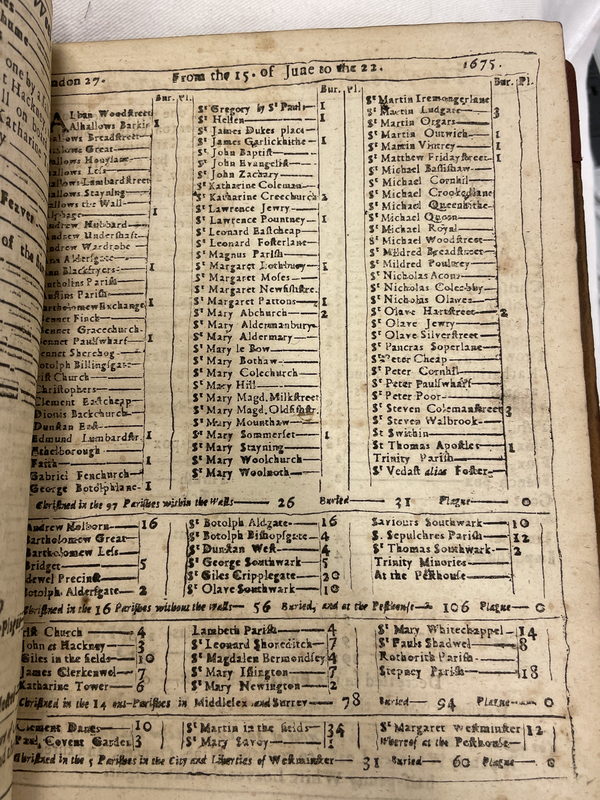 ndon 27. From the 15. of June to the 22. 1675.
Bur. Pl.
Alban Woodstreet
Alhallows Barkin 1
allows Breadstreet
allows Great
allows Honylane
allows Less
allows Lumbardstreet
allows Stayning
allows the Wall
1
drew Hubbard
ndrew Undershaft
ndrew Wardrobe
nn Aldersgate
nn Blackfryers 1
artholmew Exchange 1
ennet Finck
ennet Gracechurch
ennet Paulswharf 1
ennet Sherehog
otolph Billingsgate
rist Church
Christophers
Clement Eastcheap
Dionis Backchurch
Dunstan East
Edmund Lumbardstr. 1
Ethelborough
Faith 1
Gabriel Fenchurch
George Botolphlane 1
Bur. Pl.
St Gregory by St Pauls 1
St Hellen 1
St James Dukes place
St James Garlickhithe 1
St John Baptist
St John Evangelist
St John Zachary
St Katharine Coleman
St Katharine Creechurch 2
St Lawrence Jewry
St Lawrence Pountney 1
St Leonard Eastcheap
St Leonard Fosterlane
St Magnus Parish
St Margaret Lothbury 1
St Margaret Moses
St Margaret Newfishstre.
St Margaret Pattons 1
St Mary Abchurch 2
St Mary Aldermanbury
St Mary Aldermary
St Mary le Bow
St Mary Bothaw
St Mary Colechurch
St Mary Hill
St Mary Magd. Milkstreet
St Mary Magd. Oldfishstr.
St Mary Mounthaw
St Mary Sommerset 1
St Mary Stayning
St Mary Woolchurch
St Mary Woolnoth
Bur. Pl.
St Martin Iremongerlane
St Martin Ludgate 3
St Martin Orgars
St Martin Outwich 1
St Martin Vintrey 1
St Matthew Fridaystreet 1
St Michael Bassishaw
St Michael Cornhil
St Michael Crookedlane
St Michael Queenhithe
St Michael Quern
St Michael Royal
St Michael Woodstreet
St Mildred Breadstreet
St Mildred Poultrey
St Nicholas Acons
St Nicholas Coleabby
St Nicholas Olaves
St Olave Hartstreet 2
St Olave Jewry
St Olave Silverstreet
St Pancras Soperlane
St Peter Cheap
St Peter Cornhil
St Peter Paulswharf
St Peter Poor
St Steven Colemanstreet 3
St Steven Walbrook
St Swithin
St Thomas Apostles 1
Trinity Parish
St Vedast alias Foster
Christned in the 97 Parishes within the Walls 26 Buried 31 Plague 0
Andrew Holborn 16
Bartholomew Great
Bartholomew Less
Bridget 5
dewel Precinct
otolph Aldersgate 2
St Botolph Aldgate 16
St Botolph Bishopsgate 4
St Dunstan West 4
St George Southwark 5
St Giles Cripplegate 20
St Olave Southwark 10
Saviours Southwark 10
S. Sepulchres Parish 12
St Thomas Southwark 2
Trinity Minories
At the Pesthouse
Christned in the 16 Parishes without the Walls 56 Buried, and at the Pesthouse 106 Plague 0
rist Church 4
John at Hackney 3
Giles in the fields 10
James Clerkenwel 7
Katharine Tower 6
Lambeth Parish 4
St Leonard Shoreditch 7
St Magdalen Bermondsey 4
St Mary Islington 7
St Mary Newington 2
St Mary Whitechappel 14
St Pauls Shadwel 8
Rotherith Parish
Stepney Parish 18
Christned in the 14 out-Parishes in Middlesex and Surrey 78 Buried 94 Plague 0
Clement Danes 10
Paul Covent Garden 3
St Martin in the fields 34
St Mary Savoy 1
St Margaret Westminster 12
Whereof at the Pesthouse
Christned in the 5 Parishes in the City and Liberties of Westminster 31 Buried 60 Plague 0